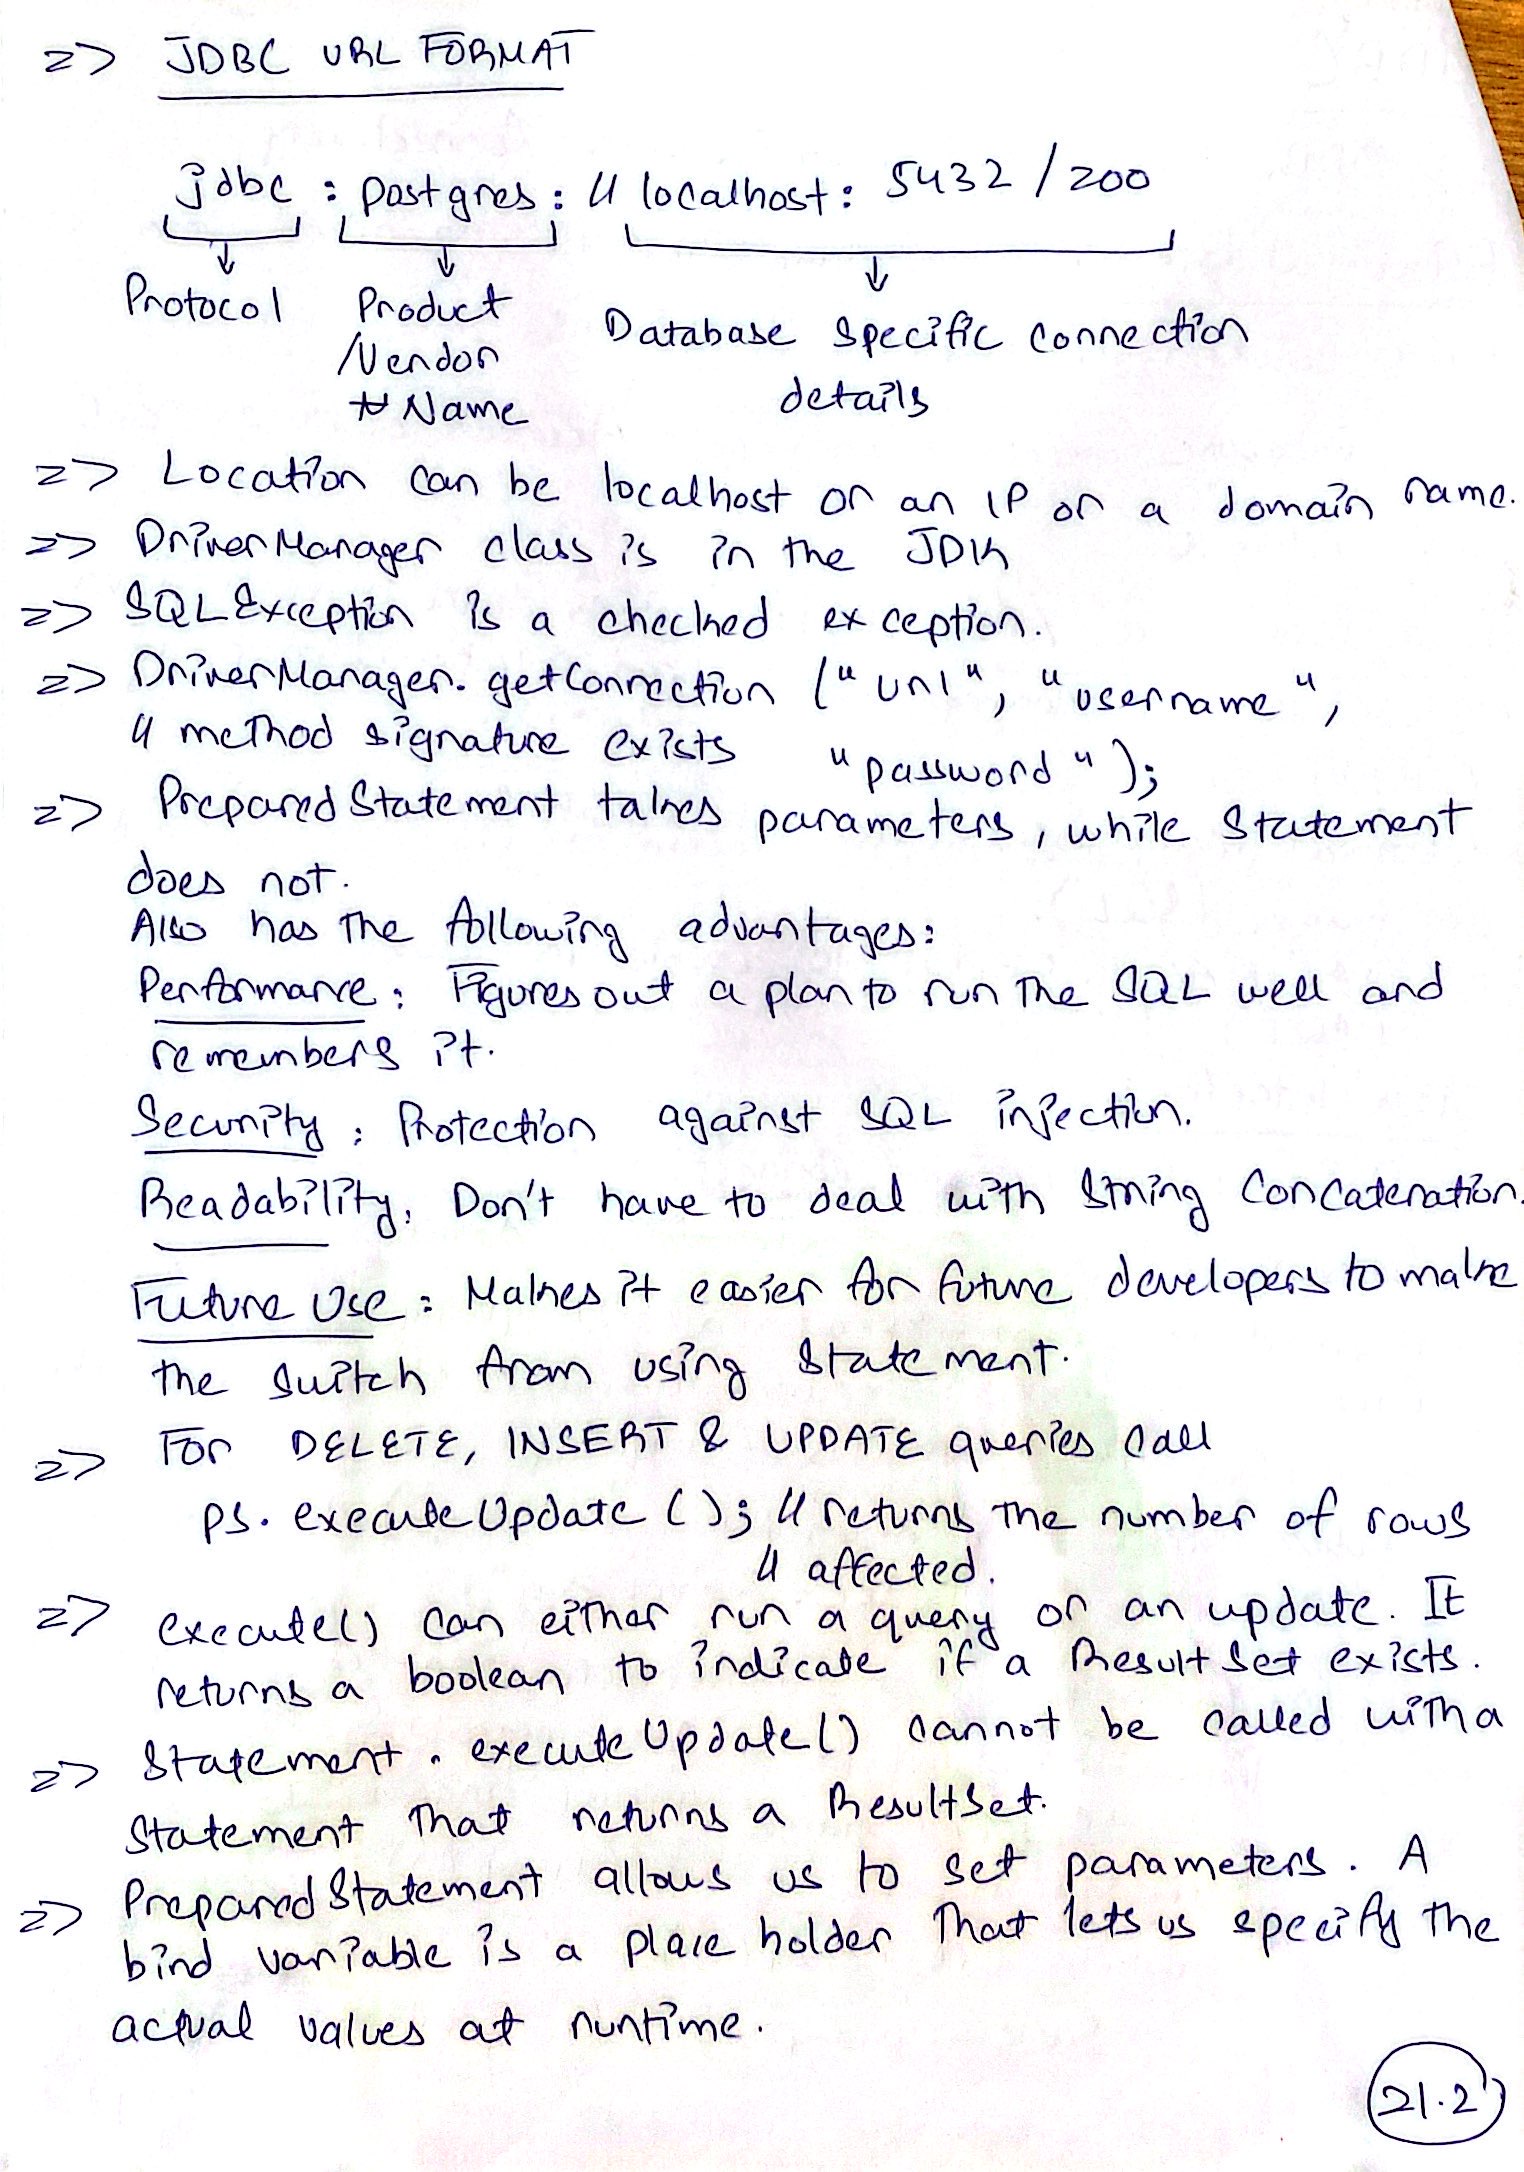 => JDBC URL FORMAT
jdbc : postgres : // localhost : 5432 / 200
Protocol Product Database specific connection
/Vendor details
Name
=> Location can be localhost or an IP or a domain name.
=> DriverManager class is in the JDK
=> SQLException is a checked exception.
=> DriverManager.getConnection ("url", "username",
// method signature exists "password");
=> PreparedStatement takes parameters, while Statement
does not.
Also has the following advantages:
Performance: Figures out a plan to run the SQL well and
remembers it.
Security: Protection against SQL injection.
Readability: Don't have to deal with String Concatenation.
Future Use: Makes it easier for future developers to make
the switch from using Statement.
=> For DELETE, INSERT & UPDATE queries call
ps.executeUpdate(); // returns the number of rows
// affected.
=> execute() can either run a query or an update. It
returns a boolean to indicate if a ResultSet exists.
=> Statement.executeUpdate() cannot be called with a
Statement that returns a ResultSet.
=> PreparedStatement allows us to set parameters. A
bind variable is a place holder that lets us specify the
actual values at runtime.
21.2